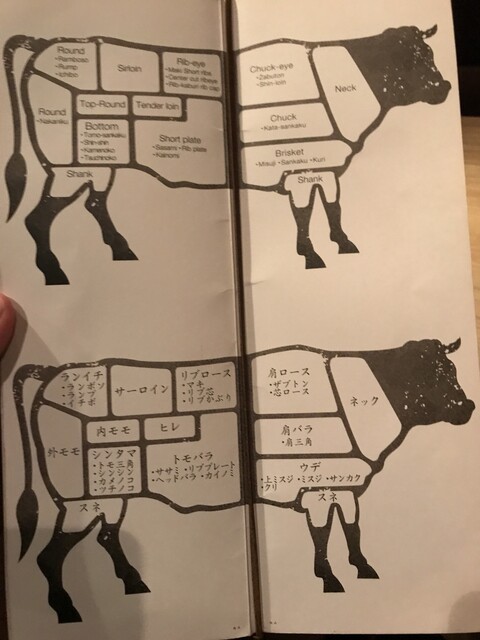 Round
•Ramboso
•Rump
•Ichibo
Sirloin
Rib-eye
•Maki Short ribs
•Center cut ribeye
•Rib-kaburi rib cap
Chuck-eye
•Zabuton
•Shin-loin
Neck
Round
•Nakaniku
Top-Round
Tender loin
Chuck
•Kata-sankaku
Bottom
•Tomo-sankaku
•Shin-shin
•Kamenoko
•Tsuchinoko
Short plate
•Sasami •Rib plate
•Kainomi
Brisket
•Misuji •Sankaku •Kuri
Shank
Shank
ランイチ
•ランボソ
•ランプ
•イチボ
サーロイン
リブロース
•マキ
•リブ芯
•リブかぶり
肩ロース
•ザブトン
•芯ロース
ネック
外モモ
内モモ
ヒレ
肩バラ
•肩三角
シンタマ
•トモ三角
•シンシン
•カメノコ
•ツチノコ
トモバラ
•ササミ •リブプレート
•ヘッドバラ •カイノミ
ウデ
•上ミスジ •ミスジ •サンカク
•クリ
スネ
スネ